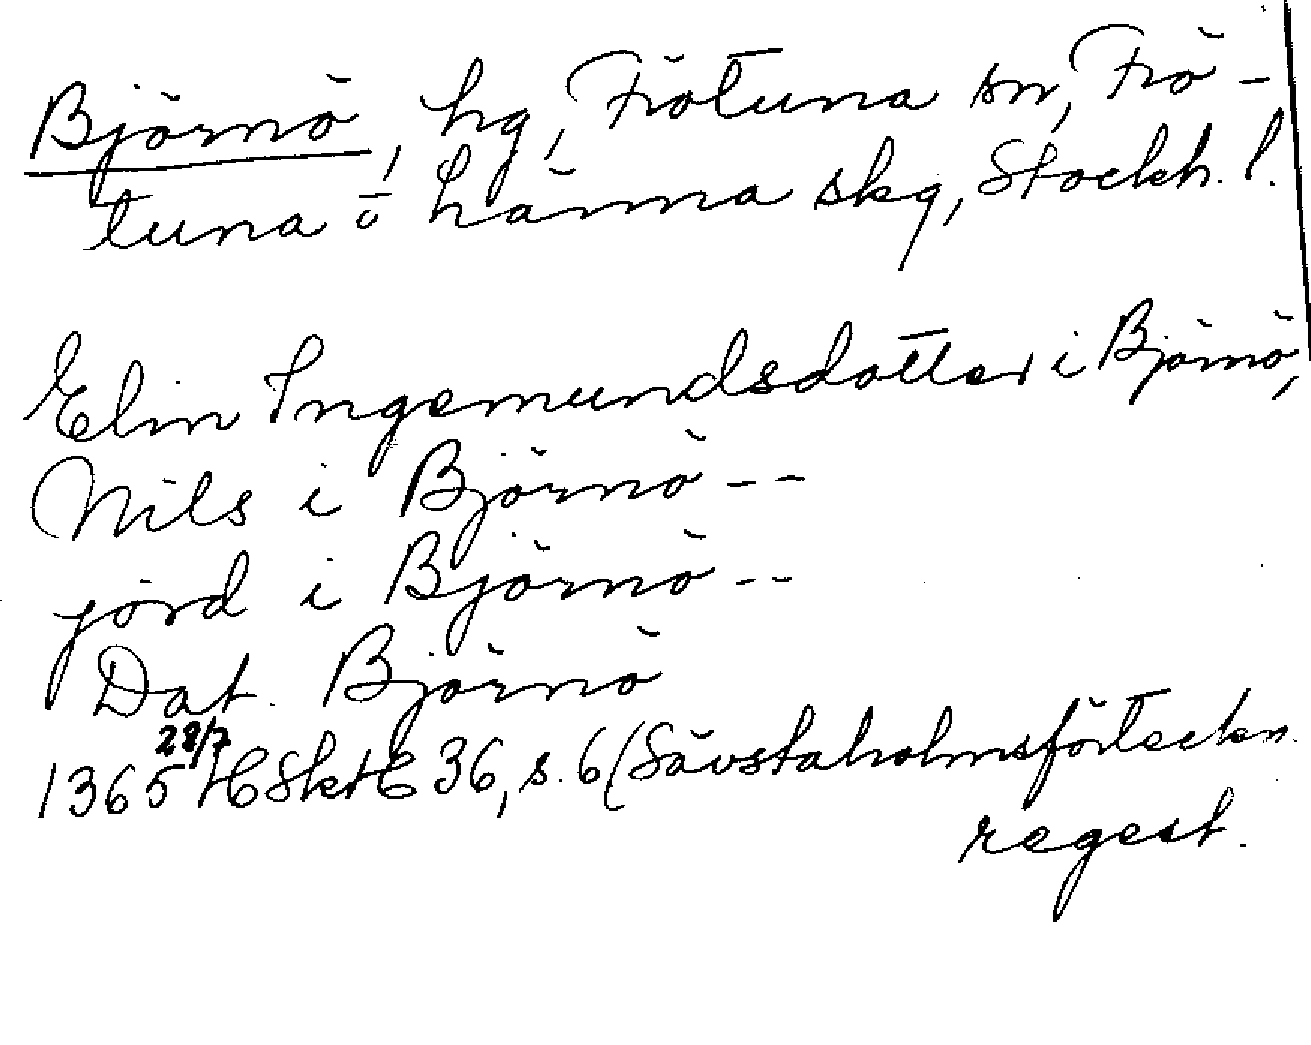 Björnö, hg, Frötuna sn, Frö-
tuna o Länna skg, Stockh. l.
Elin Ingemundsdotter i Björnö,
Nils i Björnö --
jord i Björnö --
Dat. Björnö
1365 28/7 HSkt E 36, s. 6 (Sävstaholmsförteckn.
regest.